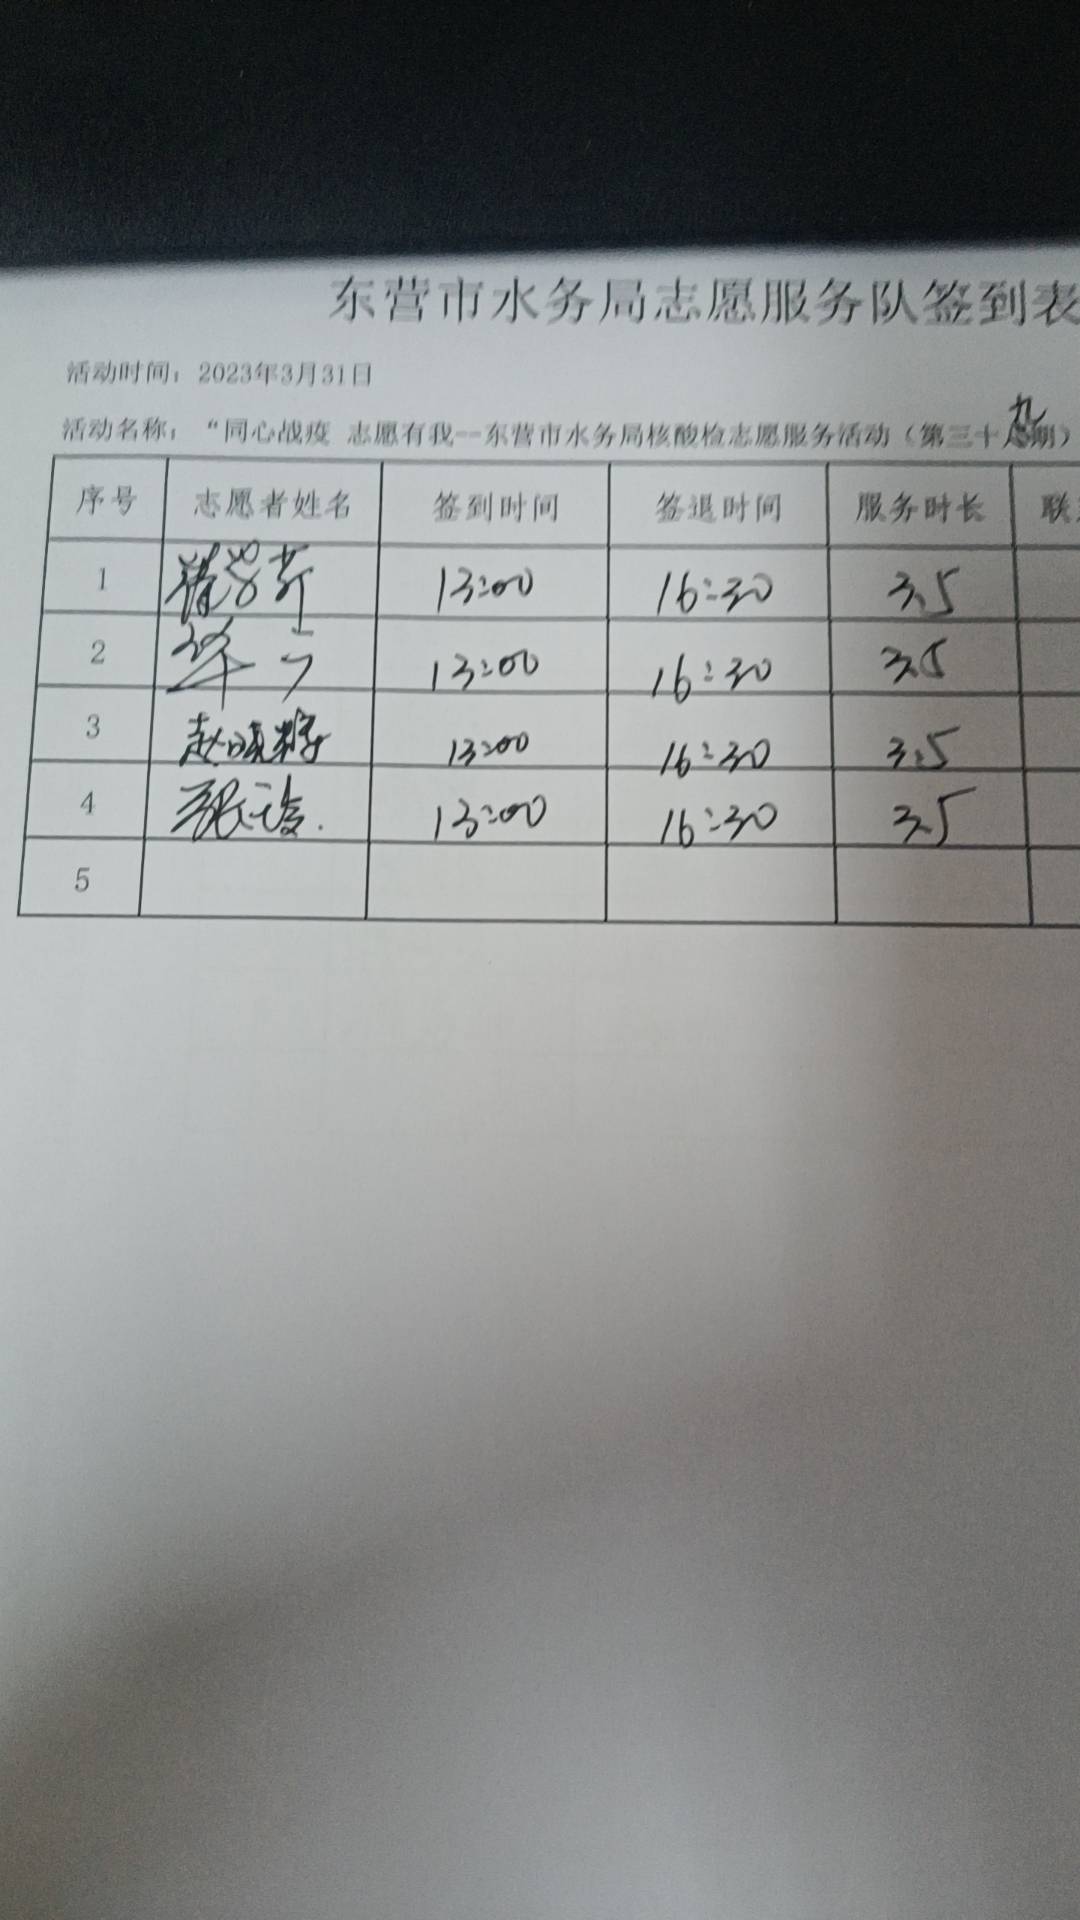 东营市水务局志愿服务队签到表
活动时间：2023年3月31日
活动名称：“同心战疫 志愿有我--东营市水务局核酸检志愿服务活动（第三十九期）
序号 志愿者姓名 签到时间 签退时间 服务时长 联
1 13:00 16:30 3.5
2 13:00 16:30 3.5
3 赵晓 13:00 16:30 3.5
4 张 13:00 16:30 3.5
5